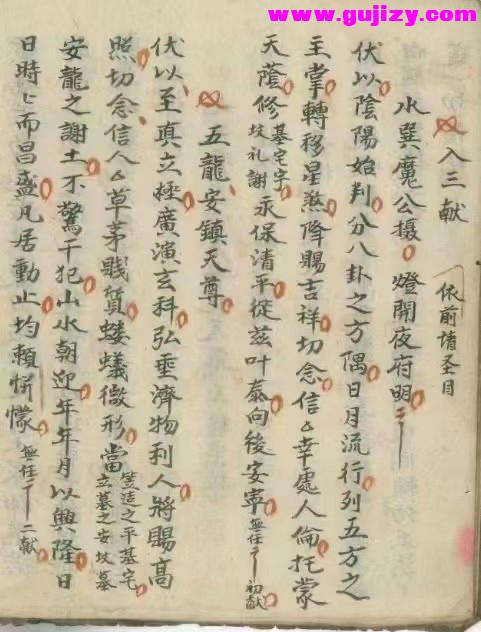 www.gujizy.com
入三献 依前请圣目
水巽魔公摄 燈開夜府明
伏以陰陽始判分八卦之方隅日月流行列五方之
主掌轉移星煞降賜吉祥切念信 幸處人倫托蒙
天蔭修基宅宇坟礼謝永保清平從茲叶泰向後安寧無任 初献
五龍安鎮天尊
伏以至真立極廣演玄科弘垂濟物利人將賜高
照切念信人 草茅賤質螻蟻微形當竖造之平基宅立墓之安坟墓
安龍之謝土不驚干犯山水朝迎年年月以興隆日
日時〻而昌盛凡居動止均賴帡幪無任 二献